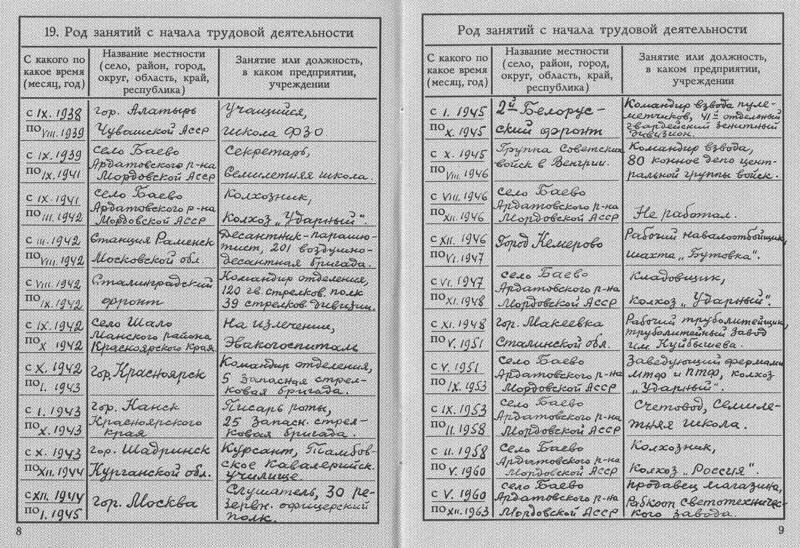 19. Род занятий с начала трудовой деятельности
С какого по какое время (месяц, год)
Название местности (село, район, город, округ, область, край, республика)
Занятие или должность, в каком предприятии, учреждении
с IX. 1938
по VIII. 1939
гор. Алатырь
Чувашской АССР
Учащийся,
школа ФЗО
с IX. 1939
по IX. 1941
Село Баево
Ардатовского р-на
Мордовской АССР
Секретарь,
Семилетняя школа.
с IX. 1941
по III. 1942
Село Баево
Ардатовского р-на
Мордовской АССР
Колхозник,
Колхоз „Ударный".
с III. 1942
по VIII. 1942
Станция Раменск
Московской обл.
Десантник-парашю-
тист, 201 воздушно-
десантная бригада.
с VIII. 1942
по IX. 1942
Сталинградский
фронт
Командир отделения,
120 гв. стрелков. полк
39 стрелков. дивизии.
с IX. 1942
по X 1942
Село Шало
Манского района
Красноярского Края
На излечении,
Эвакогоспиталь
с X. 1942
по I. 1943
гор. Красноярск
Командир отделения,
5 запасная стрел-
ковая бригада.
с I. 1943
по X. 1943
гор. Канск
Красноярского
края
Писарь роты,
25 запасн. стрел-
ковая бригада.
с X. 1943
по XII. 1944
гор. Шадринск
Курганской обл.
Курсант, Тамбов-
ское Кавалерийск.
училище.
с XII. 1944
по I. 1945
гор. Москва
Слушатель, 30 ре-
зервн. офицерский
полк.
8
Род занятий с начала трудовой деятельности
С какого по какое время (месяц, год)
Название местности (село, район, город, округ, область, край, республика)
Занятие или должность, в каком предприятии, учреждении
с I. 1945
по X. 1945
2й Белорус-
ский фронт
Командир взвода пуле-
метчиков, 41й отдельный
гвардейский зенитный
дивизион.
с X. 1945
по VIII. 1946
Группа Советских
войск в Венгрии.
Командир взвода,
80 конное депо цент-
ральной группы войск.
с VIII. 1946
по XII. 1946
село Баево
Ардатовского р-на
Мордовской АССР
Не работал.
с XII. 1946
по VI. 1947
Город Кемерово
Рабочий навалоотбойщик,
шахта „Бутовка".
с VI. 1947
по XI. 1948
село Баево
Ардатовского р-на
Мордовской АССР
Кладовщик,
колхоз „Ударный".
с XI. 1948
по V. 1951
гор. Макеевка
Сталинской обл.
Рабочий труболитейщик,
труболитейный завод
им. Куйбышева.
с V. 1951
по IX. 1953
село Баево
Ардатовского р-на
Мордовской АССР
Заведующий фермами
МТФ и ПТФ, колхоз
„Ударный".
с IX. 1953
по II. 1958
село Баево
Ардатовского р-на
Мордовской АССР
Счетовод, Семиле-
тняя школа.
с II. 1958
по V. 1960
село Баево
Ардатовского р-на
Мордовской АССР
Колхозник,
Колхоз „Россия".
с V. 1960
по XII. 1963
село Баево
Ардатовского р-на
Мордовской АССР
продавец магазина,
Рабкооп светотехничес-
кого завода.
9